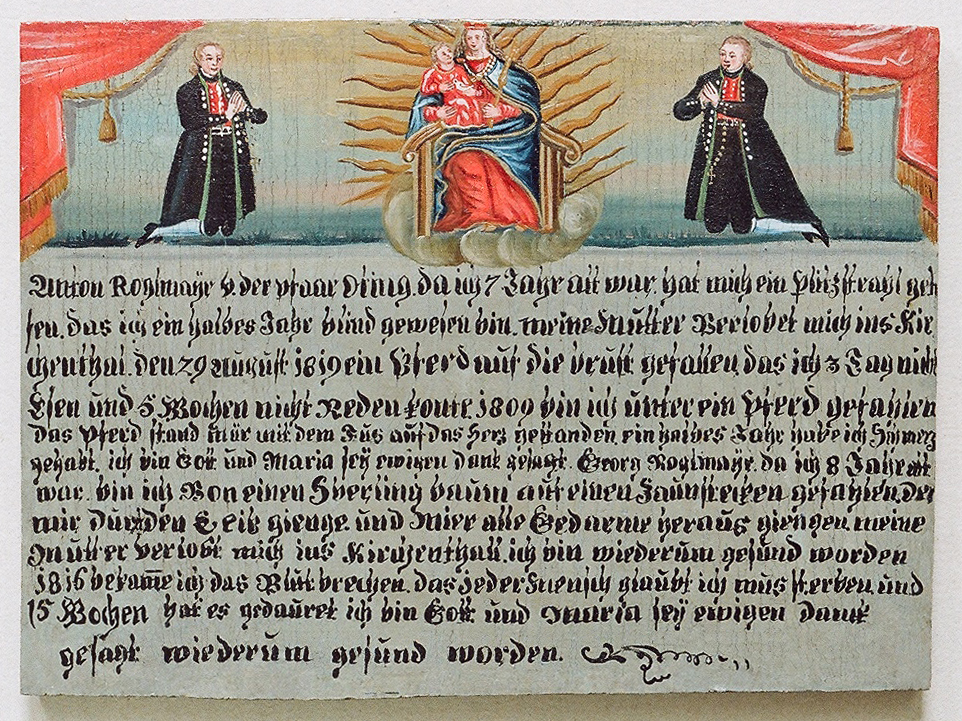 Anton Roglmayr v. der pfaar Oting. da ich 7 Jahr alt war, hat mich ein plizstrahl get
sen. das ich ein halbes Jahr blind gewesen bin. meine Mutter Verlobet mich ins Kir,
chenthal. den 29 August 1819 ein Pferd auf die brust gefallen das ich 3 Tag nicht
Esen und 5 Wochen nicht Reden konte. 1809 bin ich unter ein Pferd gefahlen
das Pferd stand mür mit dem Fus auf das Herz gestanden, ein halbes Jahr habe ich Schmerz
gehabt. ich bin Gott und Maria sey ewigen dank gesagt. Georg Roglmayr. da ich 8 Jahr alt
war. bin ich Von einen Sperling baum auf einen Zaunstecken gefahlen, der
mir durch den Leib gienge. und mier alle Gedärme heraus giengen. meine
Mutter Verlobt mich ins Kirchenthall. ich bin wiederum gesund worden
1816 bekame ich das Blut brechen. das jeder Mensch glaubt ich mus sterben. und
15 Wochen hat es gedauret ich bin Gott und Maria sey ewigen dank
gesagt wiederum gesund worden.